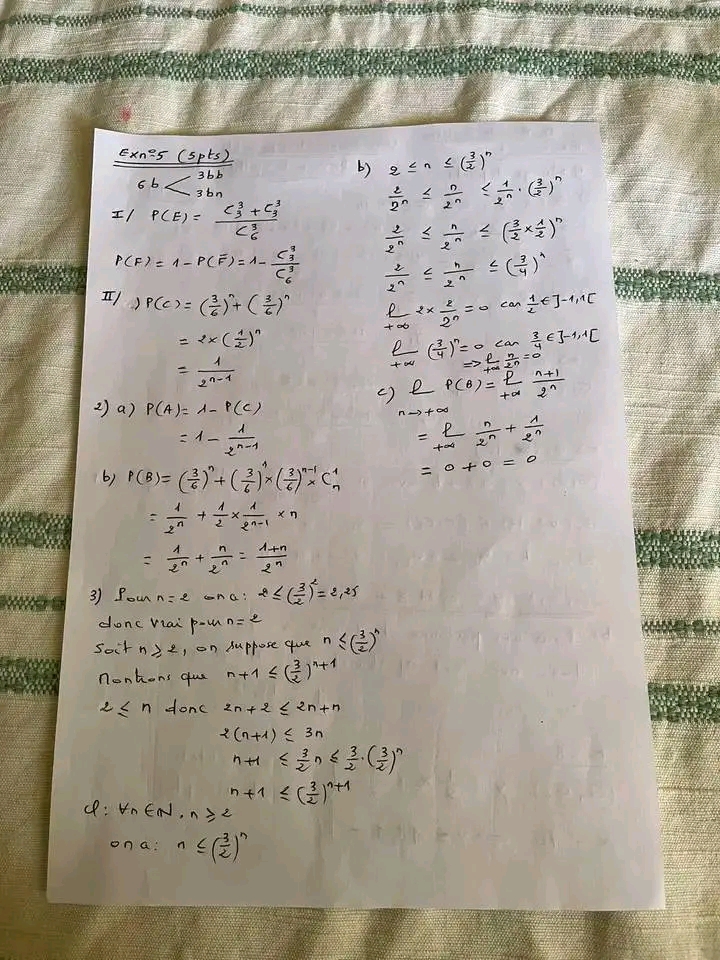 Ex n°5 (5pts)
6b < 3bb
3bn
I/ P(E) = (C₃³ + C₃³)/C₆³
P(F) = 1 - P(F̅) = 1 - C₃³/C₆³
II/ 1) P(C) = (3/6)ⁿ + (3/6)ⁿ
= 2 × (1/2)ⁿ
= 1/2ⁿ⁻¹
2) a) P(A) = 1 - P(C)
= 1 - 1/2ⁿ⁻¹
b) P(B) = (3/6)ⁿ + (3/6)¹ × (3/6)ⁿ⁻¹ × Cₙ¹
= 1/2ⁿ + 1/2 × 1/2ⁿ⁻¹ × n
= 1/2ⁿ + n/2ⁿ = (1+n)/2ⁿ
3) Pour n = 2 on a : 2 ≤ (3/2)² = 2,25
donc vrai pour n = 2
Soit n ≥ 2, on suppose que n ≤ (3/2)ⁿ
Montrons que n+1 ≤ (3/2)ⁿ⁺¹
2 ≤ n donc 2n + 2 ≤ 2n + n
2(n+1) ≤ 3n
n+1 ≤ 3/2 n ≤ 3/2 · (3/2)ⁿ
n+1 ≤ (3/2)ⁿ⁺¹
cl : ∀n ∈ ℕ, n ≥ 2
on a : n ≤ (3/2)ⁿ
b) 2 ≤ n ≤ (3/2)ⁿ
2/2ⁿ ≤ n/2ⁿ ≤ 1/2ⁿ · (3/2)ⁿ
2/2ⁿ ≤ n/2ⁿ ≤ (3/2 × 1/2)ⁿ
2/2ⁿ ≤ n/2ⁿ ≤ (3/4)ⁿ
lim +∞ 2 × 2/2ⁿ = 0 car 1/2 ∈ ]-1,1[
lim +∞ (3/4)ⁿ = 0 car 3/4 ∈ ]-1,1[
⇒ lim +∞ n/2ⁿ = 0
c) lim n→+∞ P(B) = lim +∞ (n+1)/2ⁿ
= lim +∞ n/2ⁿ + 1/2ⁿ
= 0 + 0 = 0